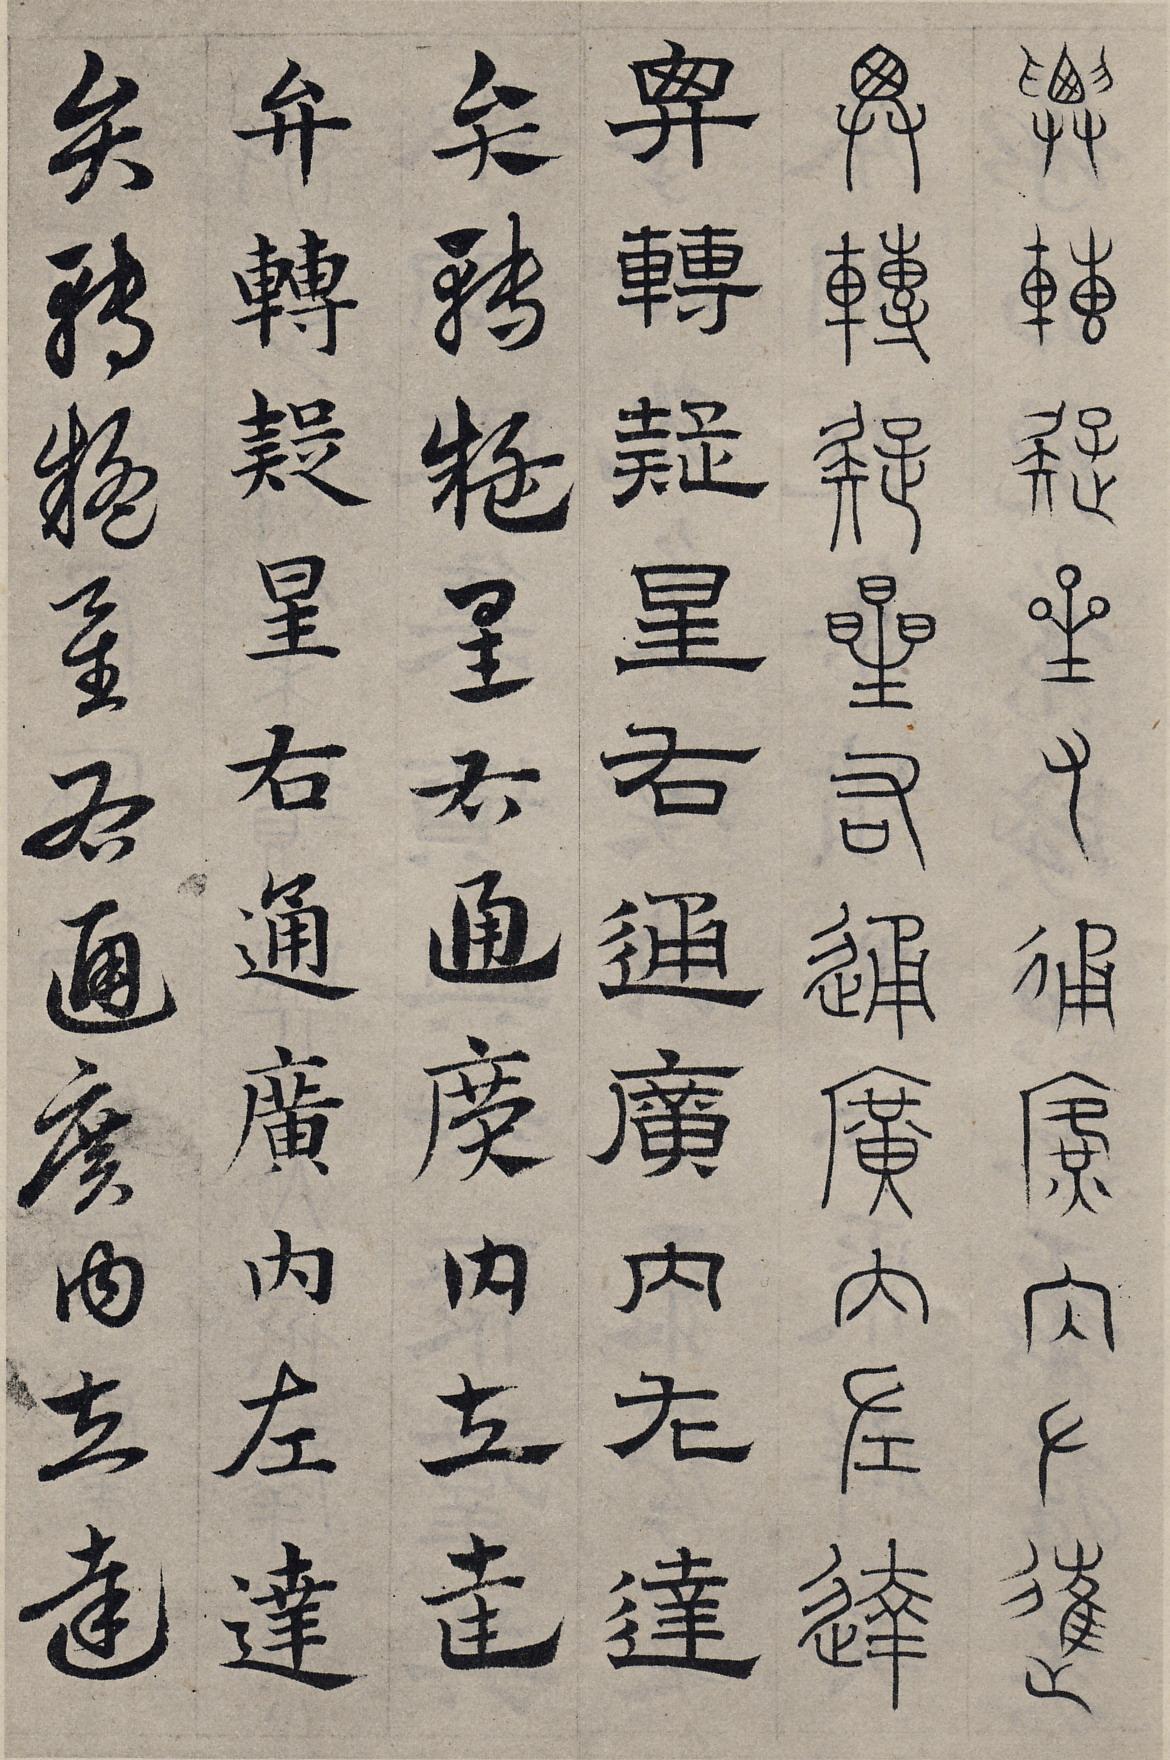 弁轉疑星右通廣内左達
弁轉疑星右通廣内左達
弁轉疑星右通廣内左達
弁轉疑星右通廣内左達
弁轉疑星右通廣内左達
弁轉疑星右通廣内左達